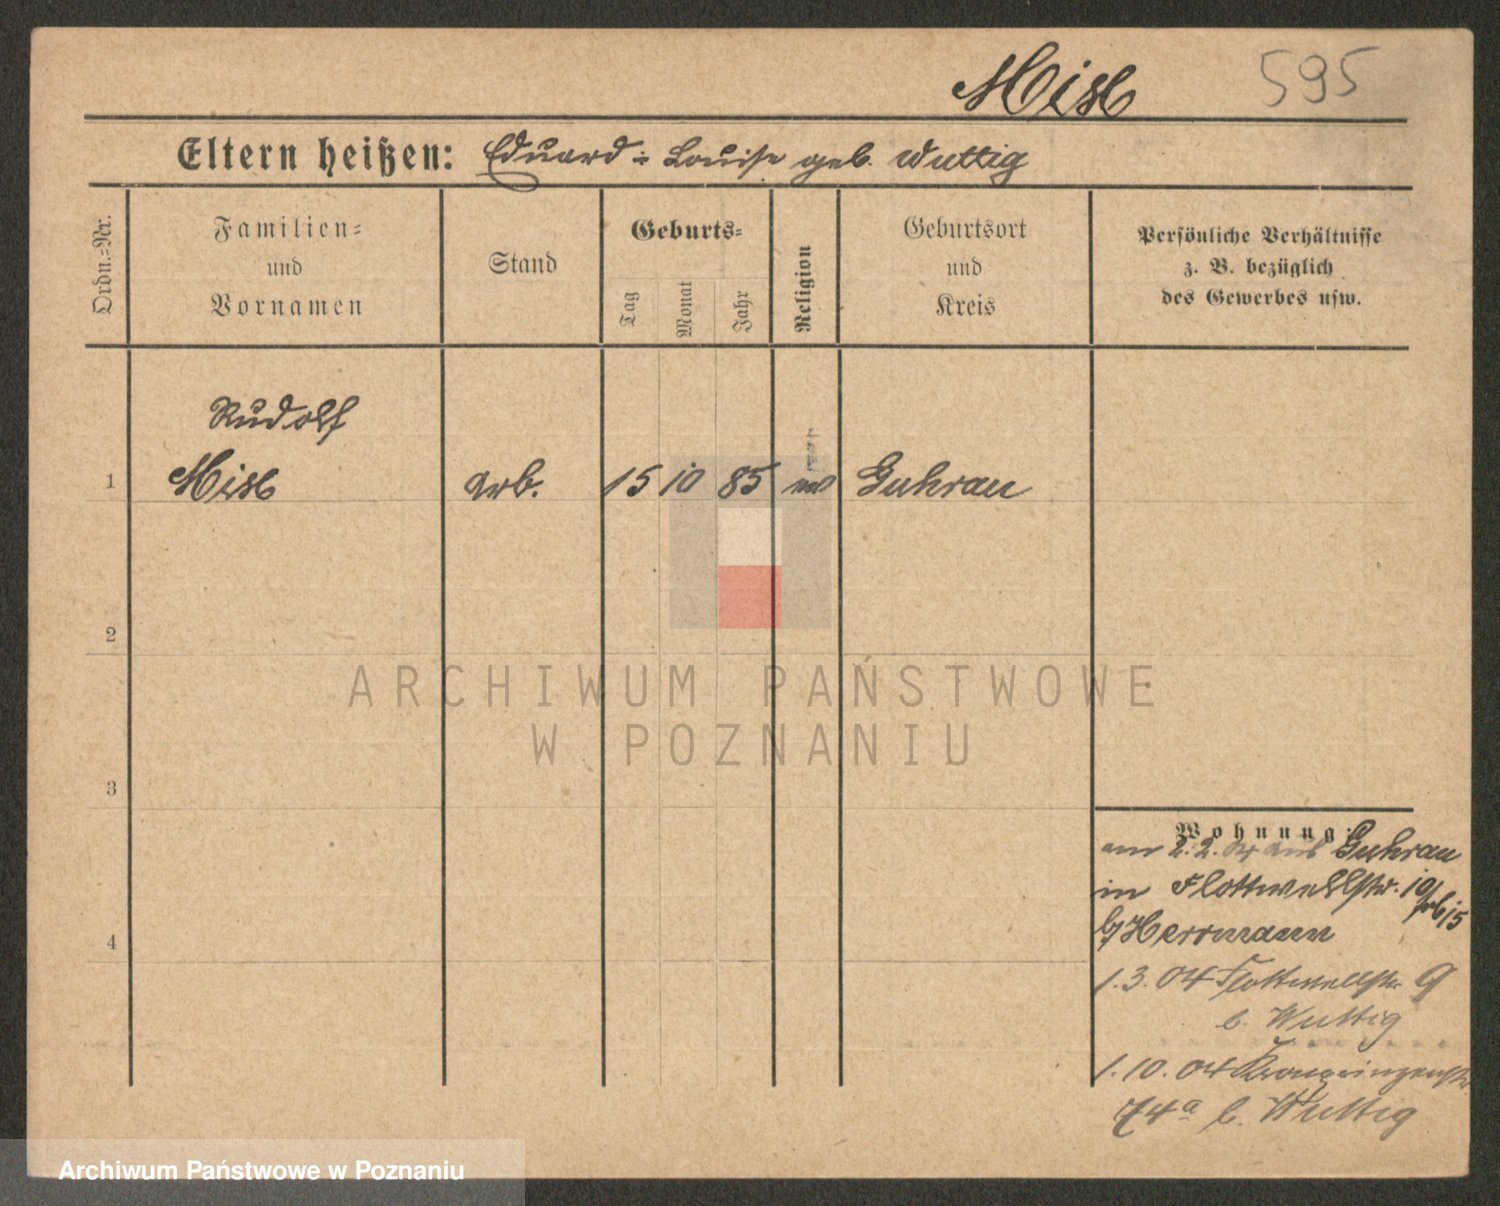 595
Eltern heißen: Eduard & Louise geb. Wuttig
Ordn.-Nr.
Familien-
und
Vornamen
Stand
Geburts-
Tag
Monat
Jahr
Religion
Geburtsort
und
Kreis
Persönliche Verhältnisse
z. B. bezüglich
des Gewerbes usw.
Rudolf
1 arb. 15 10 85 Guhrau
2
3
4
ARCHIWUM PAŃSTWOWE
W POZNANIU
Wohnung:
am 2. 2. 04 aus Guhrau
in Flottwellstr. 10
b/Herrmann
1. 3. 04 Flottwellstr 9
b. Wuttig
1. 10. 04 Kronprinzenstr
74a b. Wuttig
Archiwum Państwowe w Poznaniu